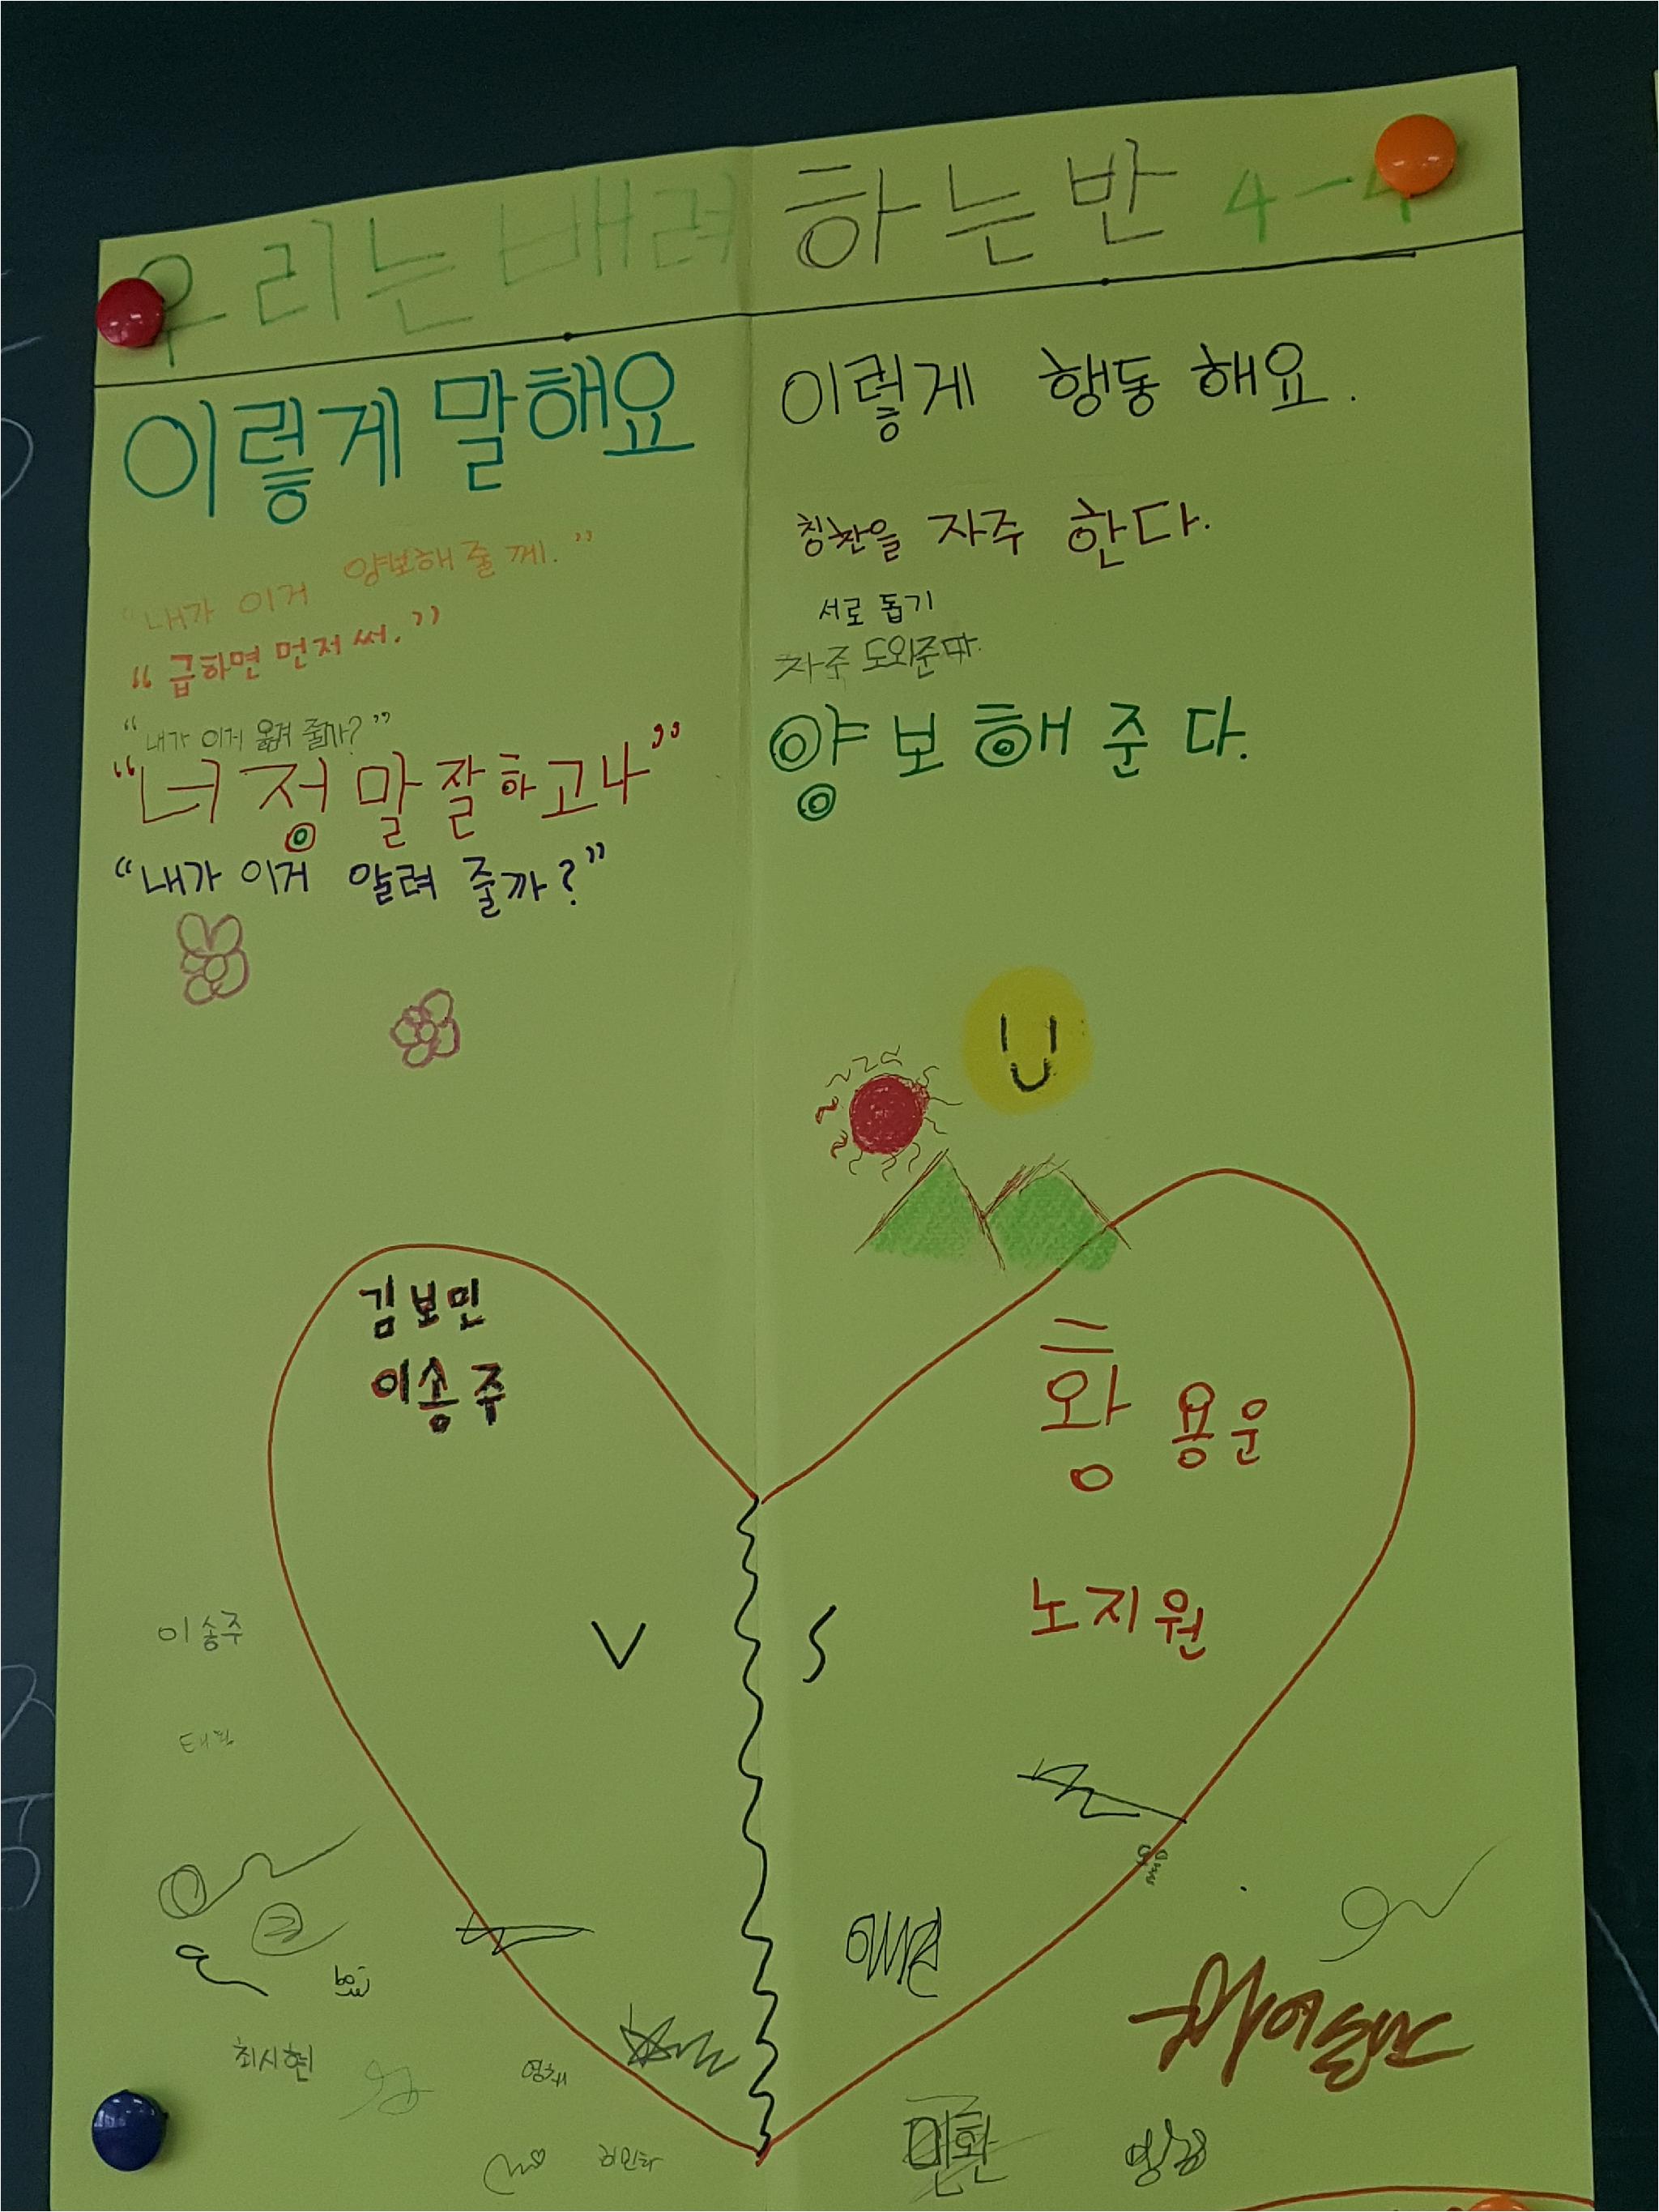 우리는 배려 하는 반 4-4
이렇게 말해요
"내가 이거 양보해 줄께."
"급하면 먼저 써."
"내가 이거 옮겨 줄까?"
"너 정말 잘하고나"
"내가 이거 알려 줄까?"
이렇게 행동 해요.
칭찬을 자주 한다.
서로 돕기
자주 도와준다.
양보해 준다.
김보민
이송주
황용운
노지원
V S
이송주
최시현
영채
민환